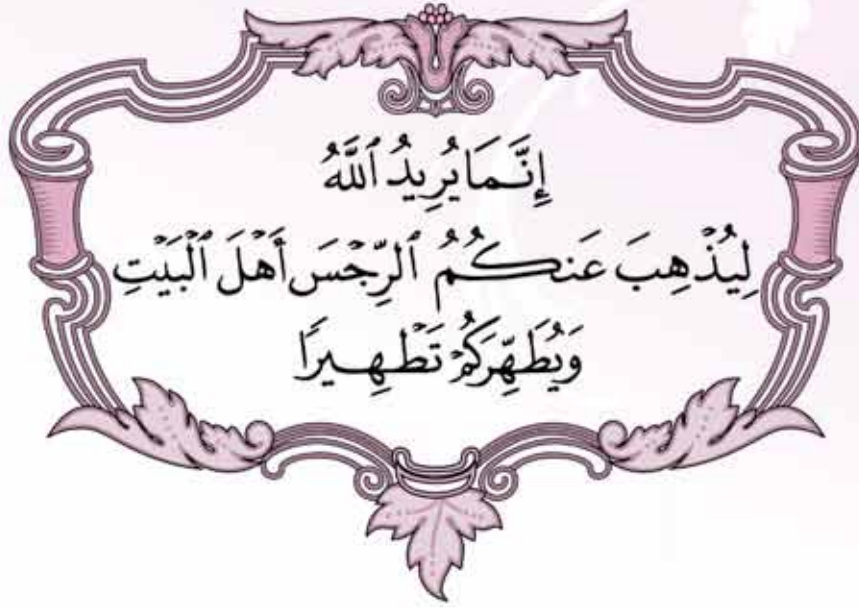 إِنَّمَا يُرِيدُ ٱللَّهُ
لِيُذْهِبَ عَنكُمُ ٱلرِّجْسَ أَهْلَ ٱلْبَيْتِ
وَيُطَهِّرَكُمْ تَطْهِيرًا